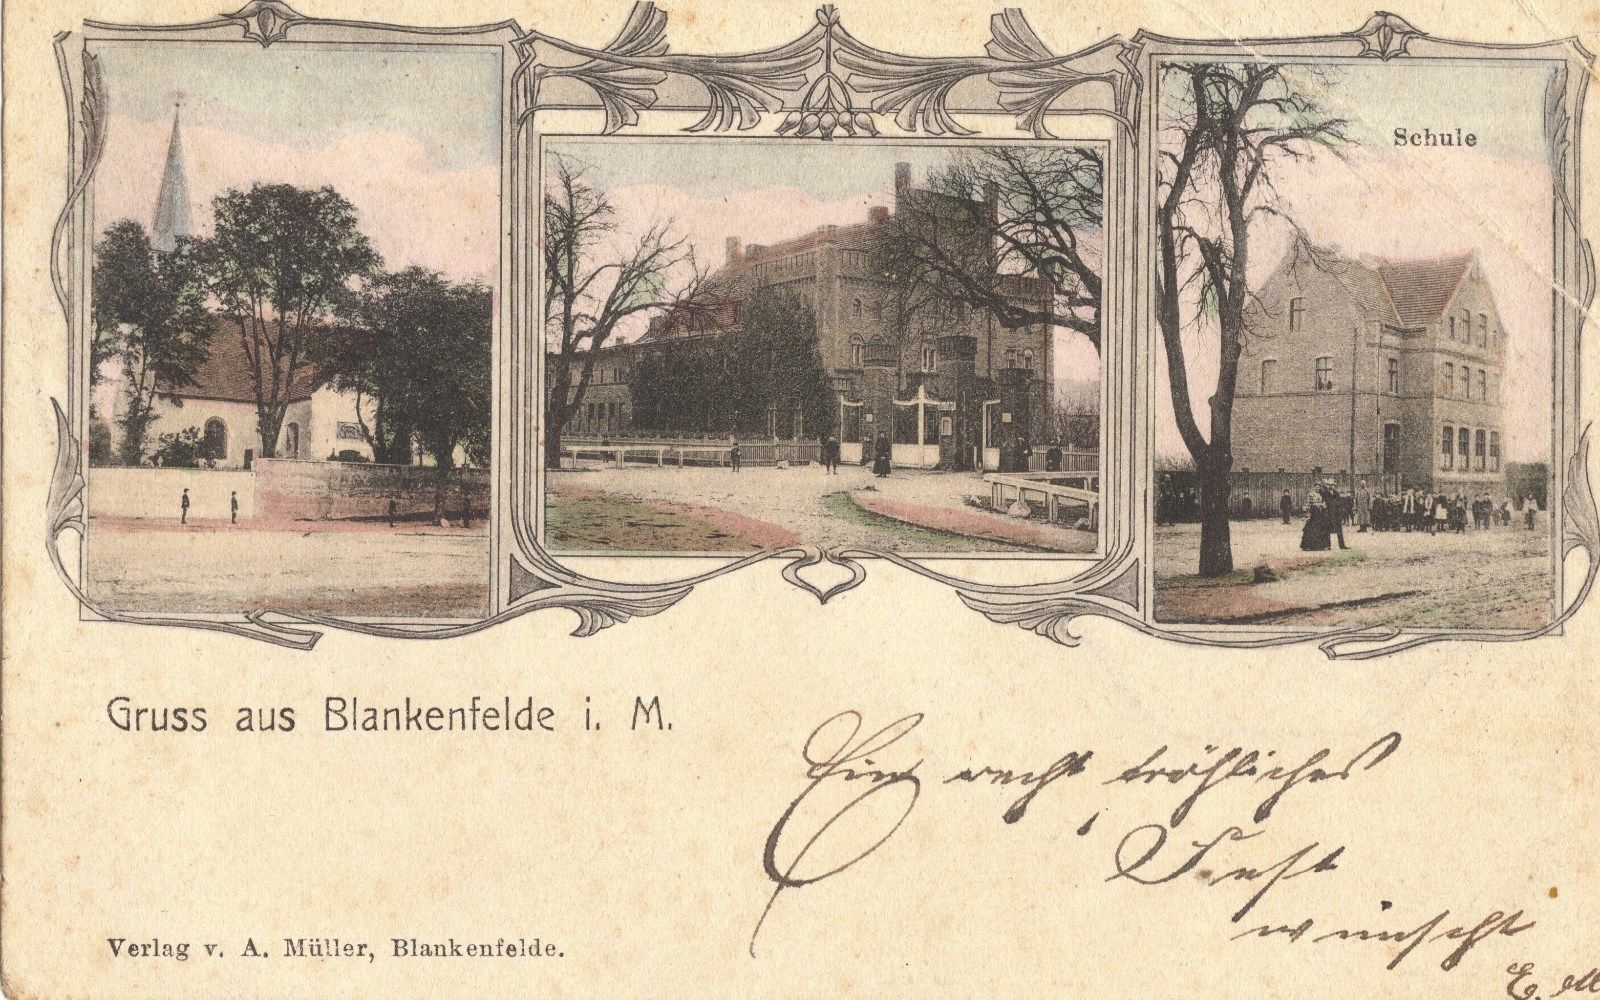 Schule
Gruss aus Blankenfelde i. M.
Ein recht fröhliches
Fest
wünscht
E. M
Verlag v. A. Müller, Blankenfelde.